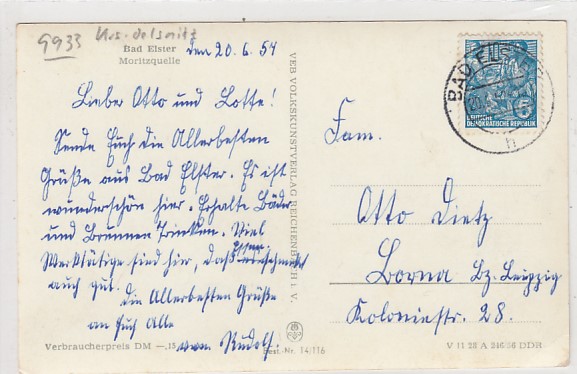 9933 Krs. Oelsnitz
Bad Elster
Moritzquelle
den 20.6.54
Lieber Otto und Lotte!
Sende Euch die Allerbesten
Grüße aus Bad Elster. Es ist
wunderschön hier. Erhalte Bäder
und Brunnen Trinken. Viel
Werktätige sind hier, daß Essen schmeckt
auch gut.
Die Allerbesten Grüße
an Euch Alle
von Rudolf.
Verbraucherpreis DM —,15
Best.-Nr. 14/116
VEB VOLKSKUNSTVERLAG REICHENBACH i. V.
BAD ELSTER
h
5
DEUTSCHE
DEMOKRATISCHE REPUBLIK
Fam.
Otto Dietz
Borna Bz. Leipzig
Koloniestr. 28.
V 11 28 A 246/56 DDR